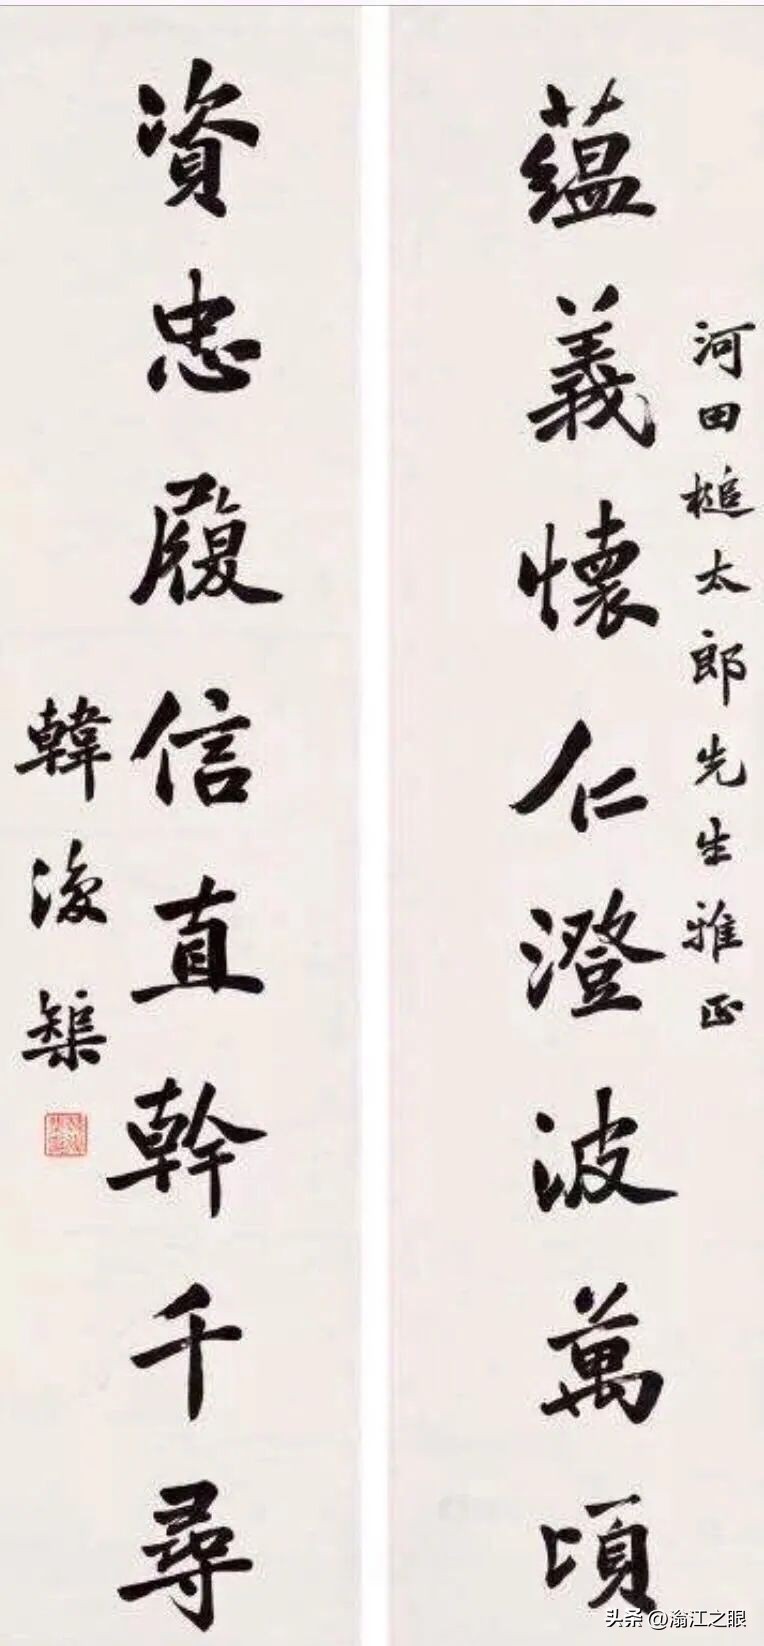 河田槌太郎先生雅正
蘊義懷仁澄波萬頃
資忠履信直幹千尋
韓浚榘
头条 @渝江之眼